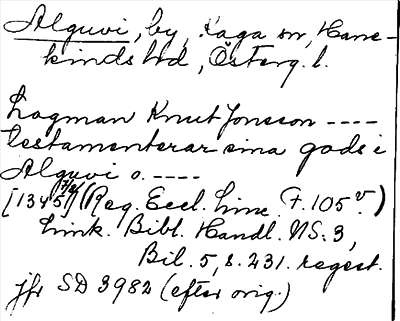 Alguvi, by, Kaga sn, Hane-
kinds hd, Österg. l.
Lagman Knut Jonsson ----
testamenterar sina gods i
Alguvi o. ----
[1345] (Reg. Eccl. Linc. F. 105 v.)
Link. Bibl. Handl. NS: 3,
Bil. 5, s. 231. regest.
jfr SD 3982 (efter orig.)